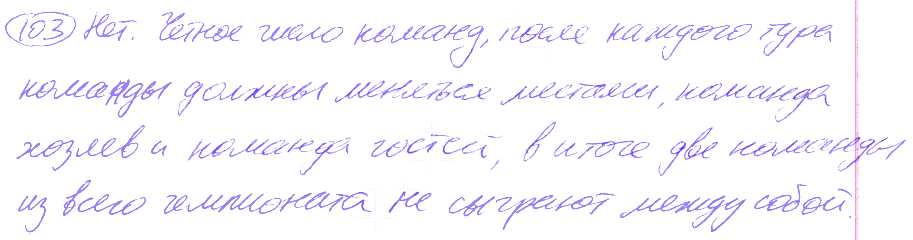 103 Нет. Четное число команд, после каждого тура
команды должны меняться местами, команда
хозяев и команда гостей, в итоге две команды
из всего чемпионата не сыграют между собой.